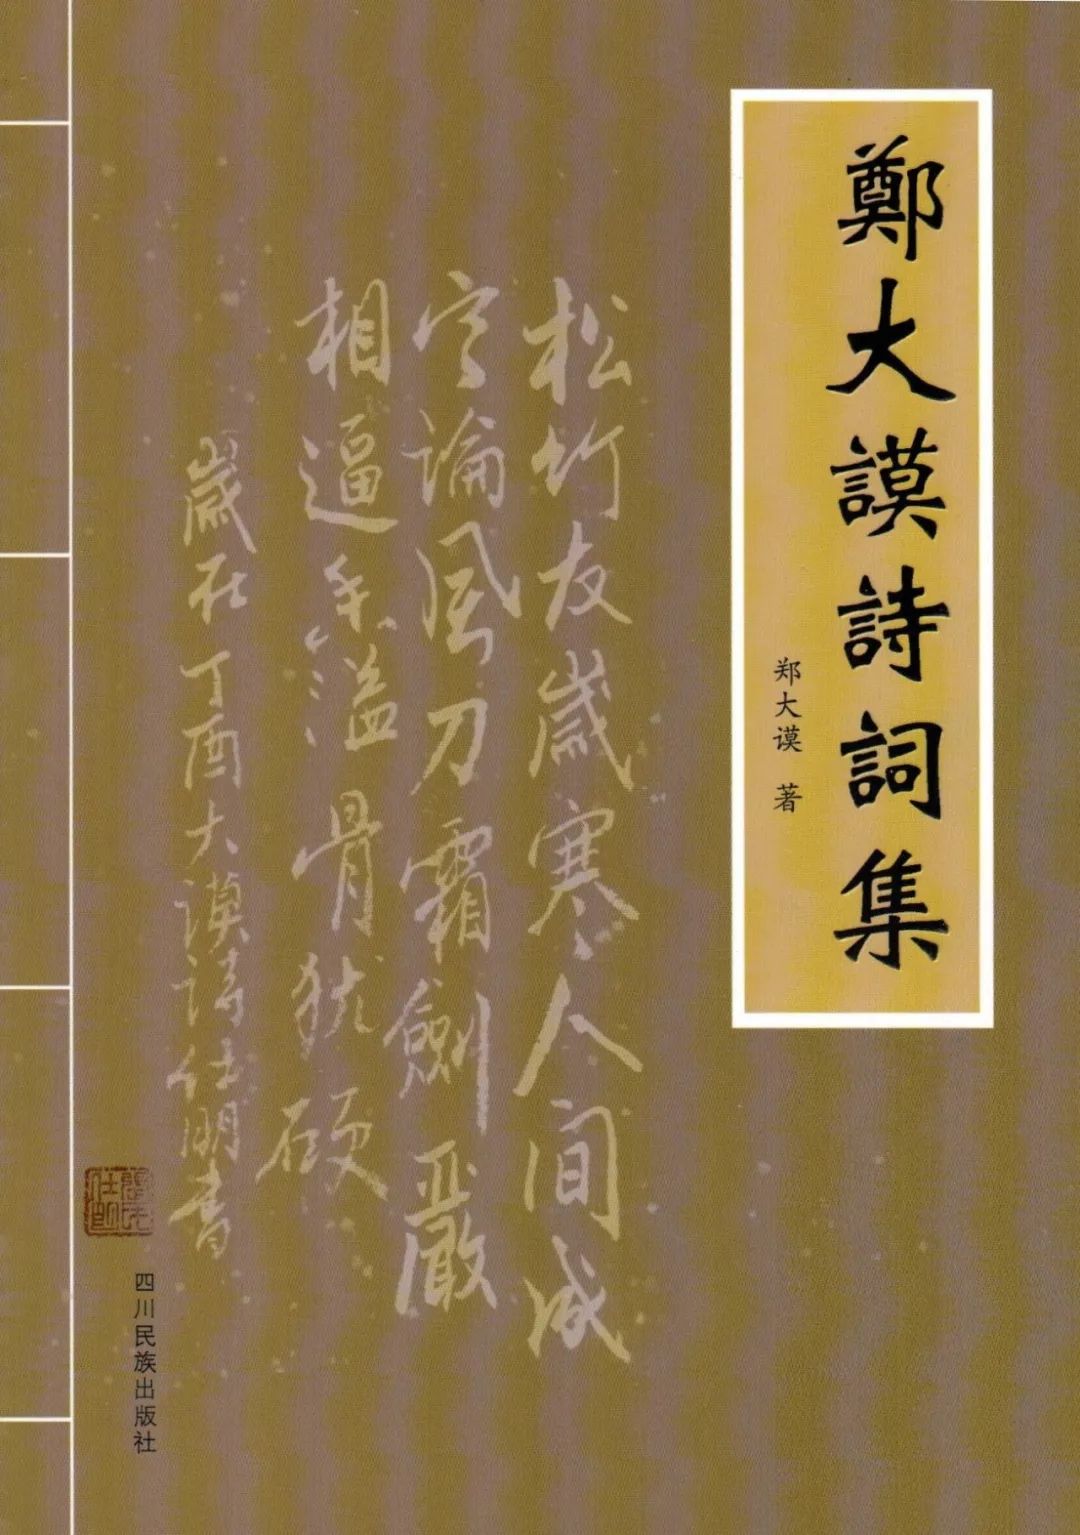 鄭大謨詩詞集
郑大谟 著
松竹友歲寒人间成
定論風刀霜劍嚴
相逼香溢骨犹
歲在丁酉大谟诗仕明書
四川民族出版社